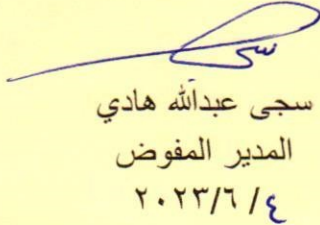 سجى عبدالله هادي
المدير المفوض
٢٠٢٣/٦/٤